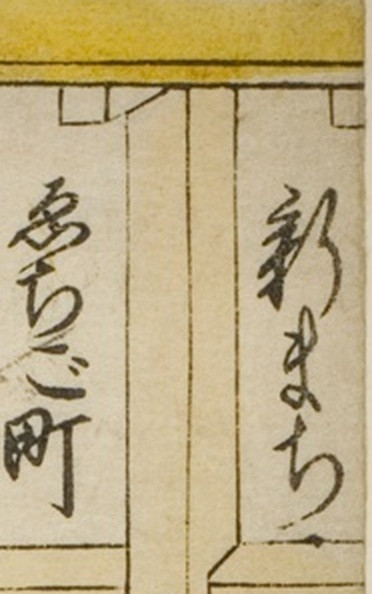 新まち
ゑちご町